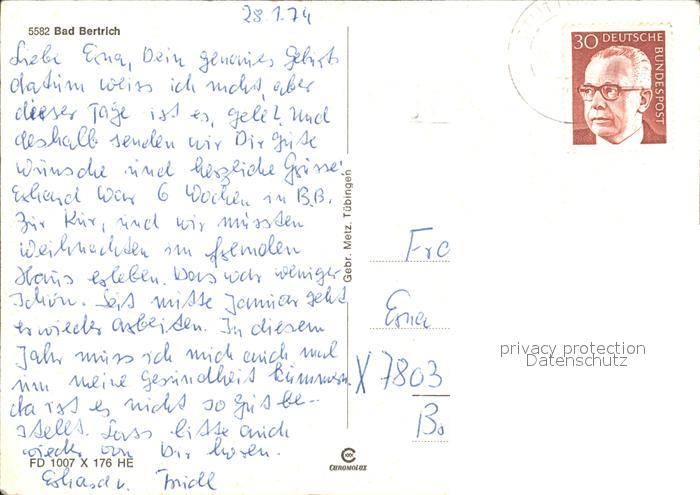 28.1.74
5582 Bad Bertrich
30 DEUTSCHE BUNDESPOST
Liebe Erna, Dein genaues Geburts
datum weiss ich nicht, aber
dieser Tage ist es, gelt? Und
deshalb senden wir Dir gute
Wünsche und herzliche Grüsse.
Erhard war 6 Wochen in B.B.
zur Kur, und wir mussten
Weihnachten im fremden
Haus erleben. Das war weniger
schön. Seit mitte Januar geht
er wieder arbeiten. In diesem
Jahr muss ich mich auch mal
um meine Gesundheit kümmern.
da ist es nicht so gut be-
stellt. Lass bitte auch
wieder von Dir hören.
Erhard u. Friedl
FD 1007 X 176 HE
Gebr. Metz, Tübingen
CHROMOLUX
Fra
Erna
X 7803
Bo
privacy protection
Datenschutz